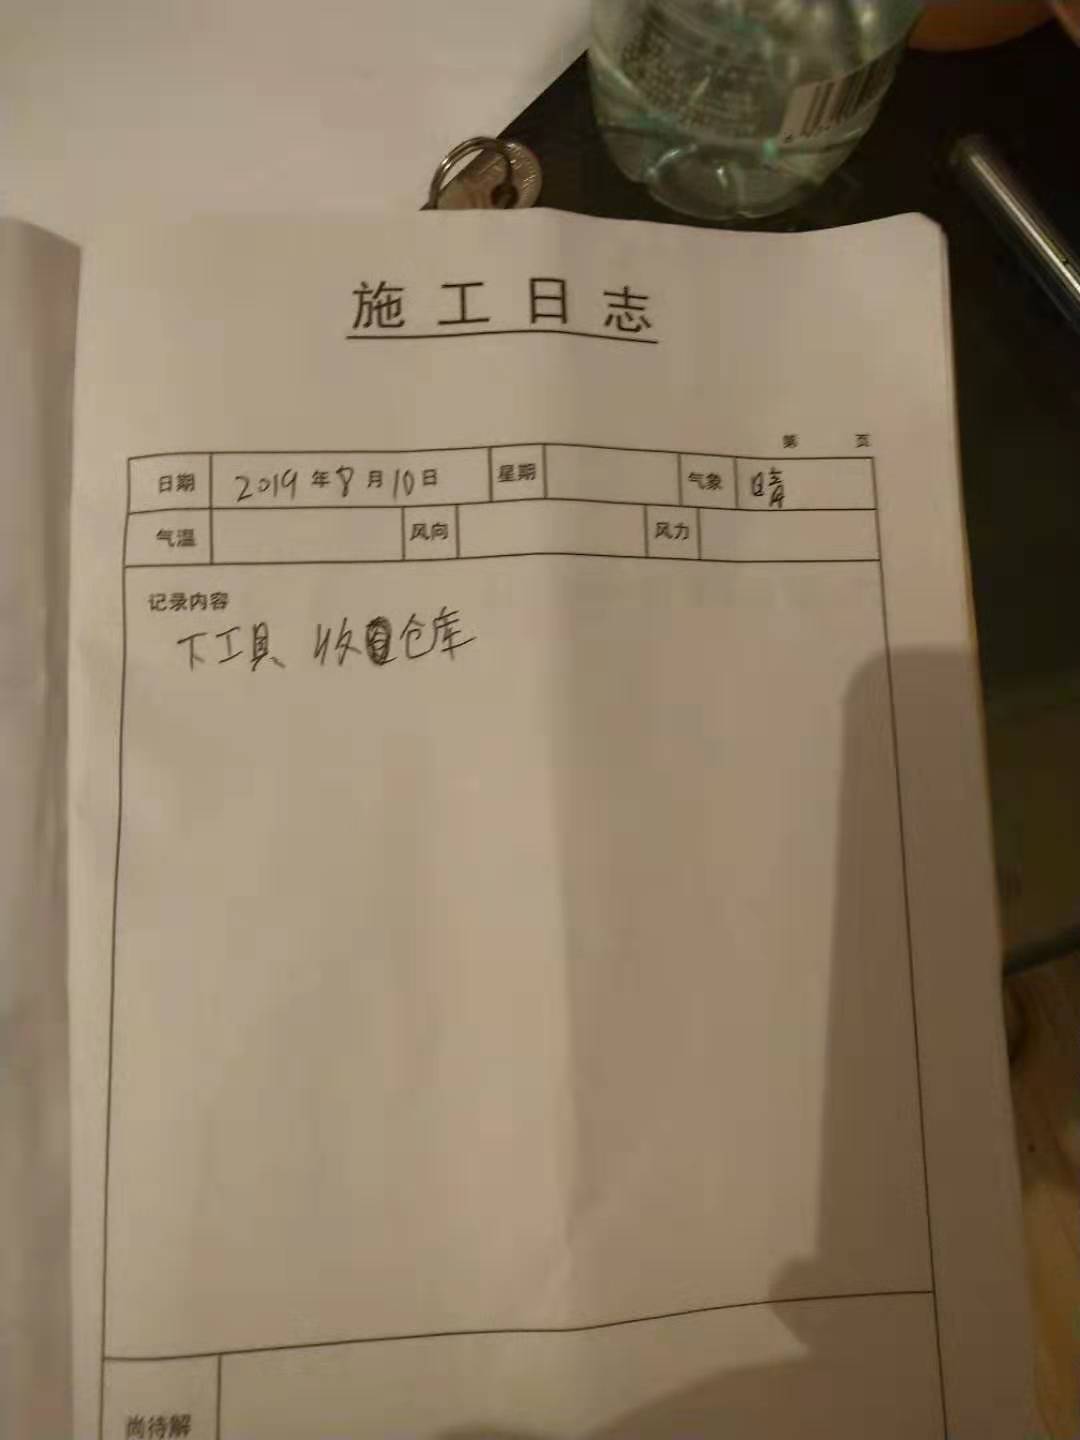 施工日志
第 页
日期 2019年8月10日 星期 气象 晴
气温 风向 风力
记录内容
下工具、收仓库
尚待解